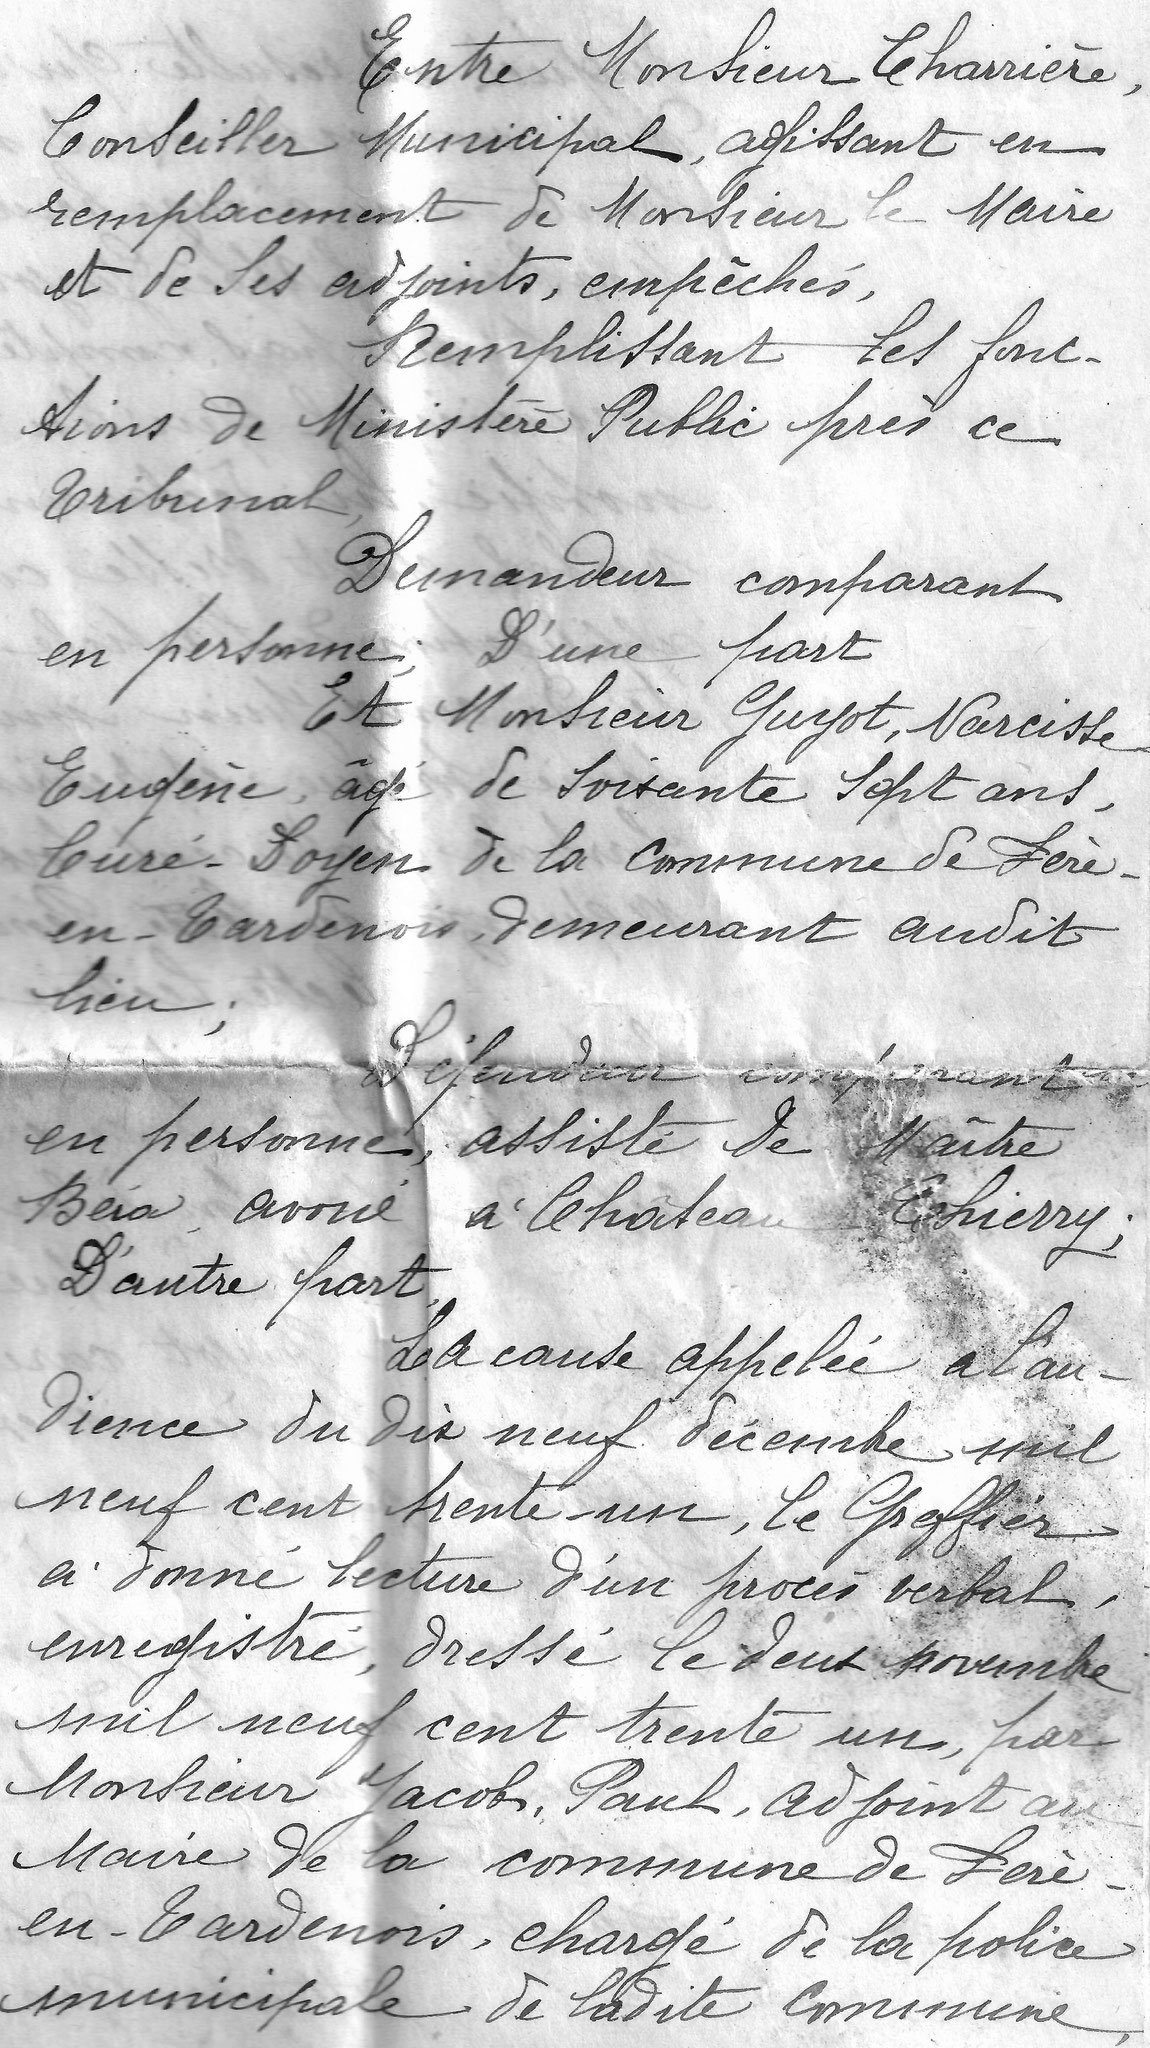 Entre Monsieur Charrière,
Conseiller Municipal, agissant en
remplacement de Monsieur le Maire
et de ses adjoints, empêchés,
Remplissant les fonc-
tions de Ministère Public près ce
Tribunal,
Demandeur comparant
en personne; D'une part
Et Monsieur Guyot, Narcisse
Eugène, âgé de soixante sept ans,
Curé-Doyen de la commune de Fère-
en-Tardenois, demeurant audit
lieu;
Défendeur comparant
en personne, assisté de Maître
Béra, avoué à Château Thierry;
D'autre part,
La cause appelée a l'au-
dience du dix neuf décembre mil
neuf cent trente-un, le Greffier
a donné lecture d'un procès verbal,
enregistré, dressé le deux novembre
mil neuf cent trente un, par
Monsieur Jacob, Paul, adjoint au
Maire de la commune de Fère-
en-Tardenois, chargé de la police
municipale de ladite commune,